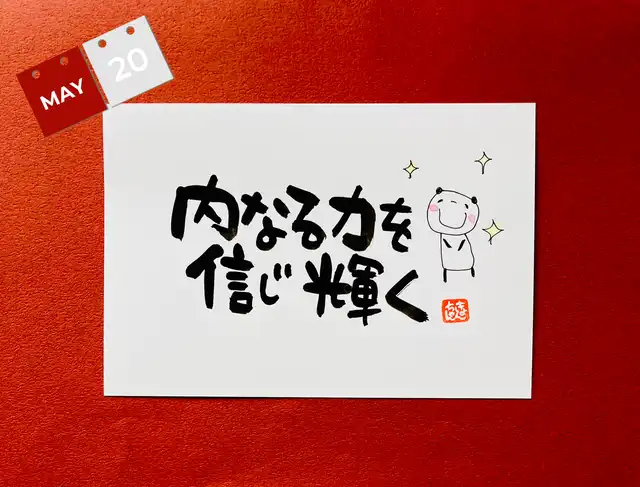 MAY
20
内なる力を
信じ輝く